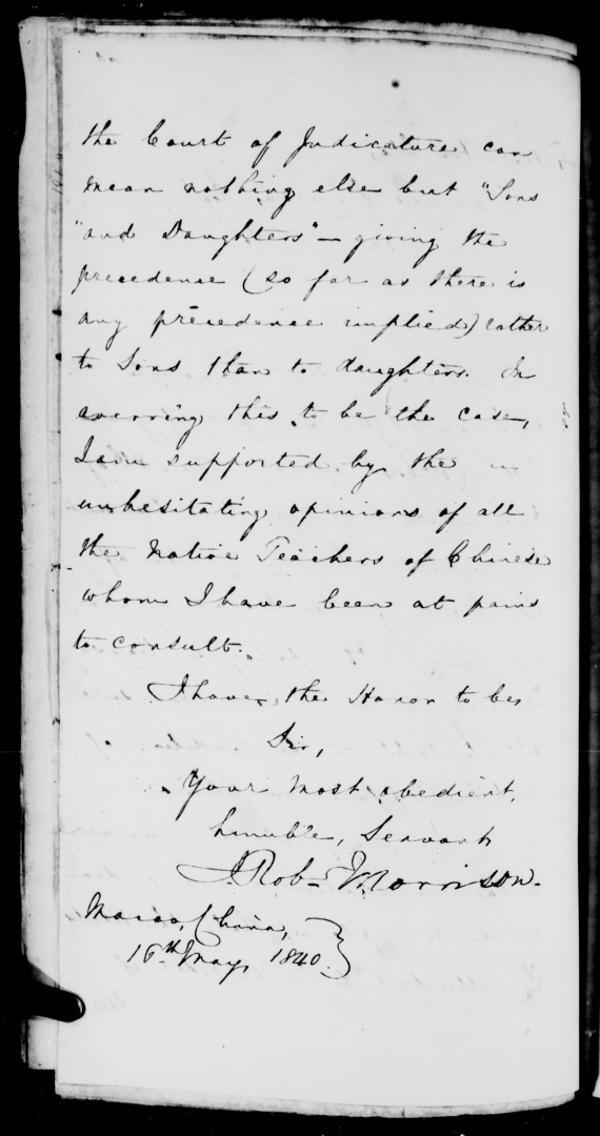 the Court of Judicature can
mean nothing else but "Sons
"and Daughters" — giving the
precedence (so far as there is
any precedence implied) rather
to Sons than to daughters. In
averring this to be the case,
I am supported by the
unhesitating opinions of all
the Native Teachers of Chinese
whom I have been at pains
to consult.
I have the Honor to be,
Sir,
Your most obedient,
humble, Servant
J. Rob. Morrison.
Macao, China,
16th May, 1840.